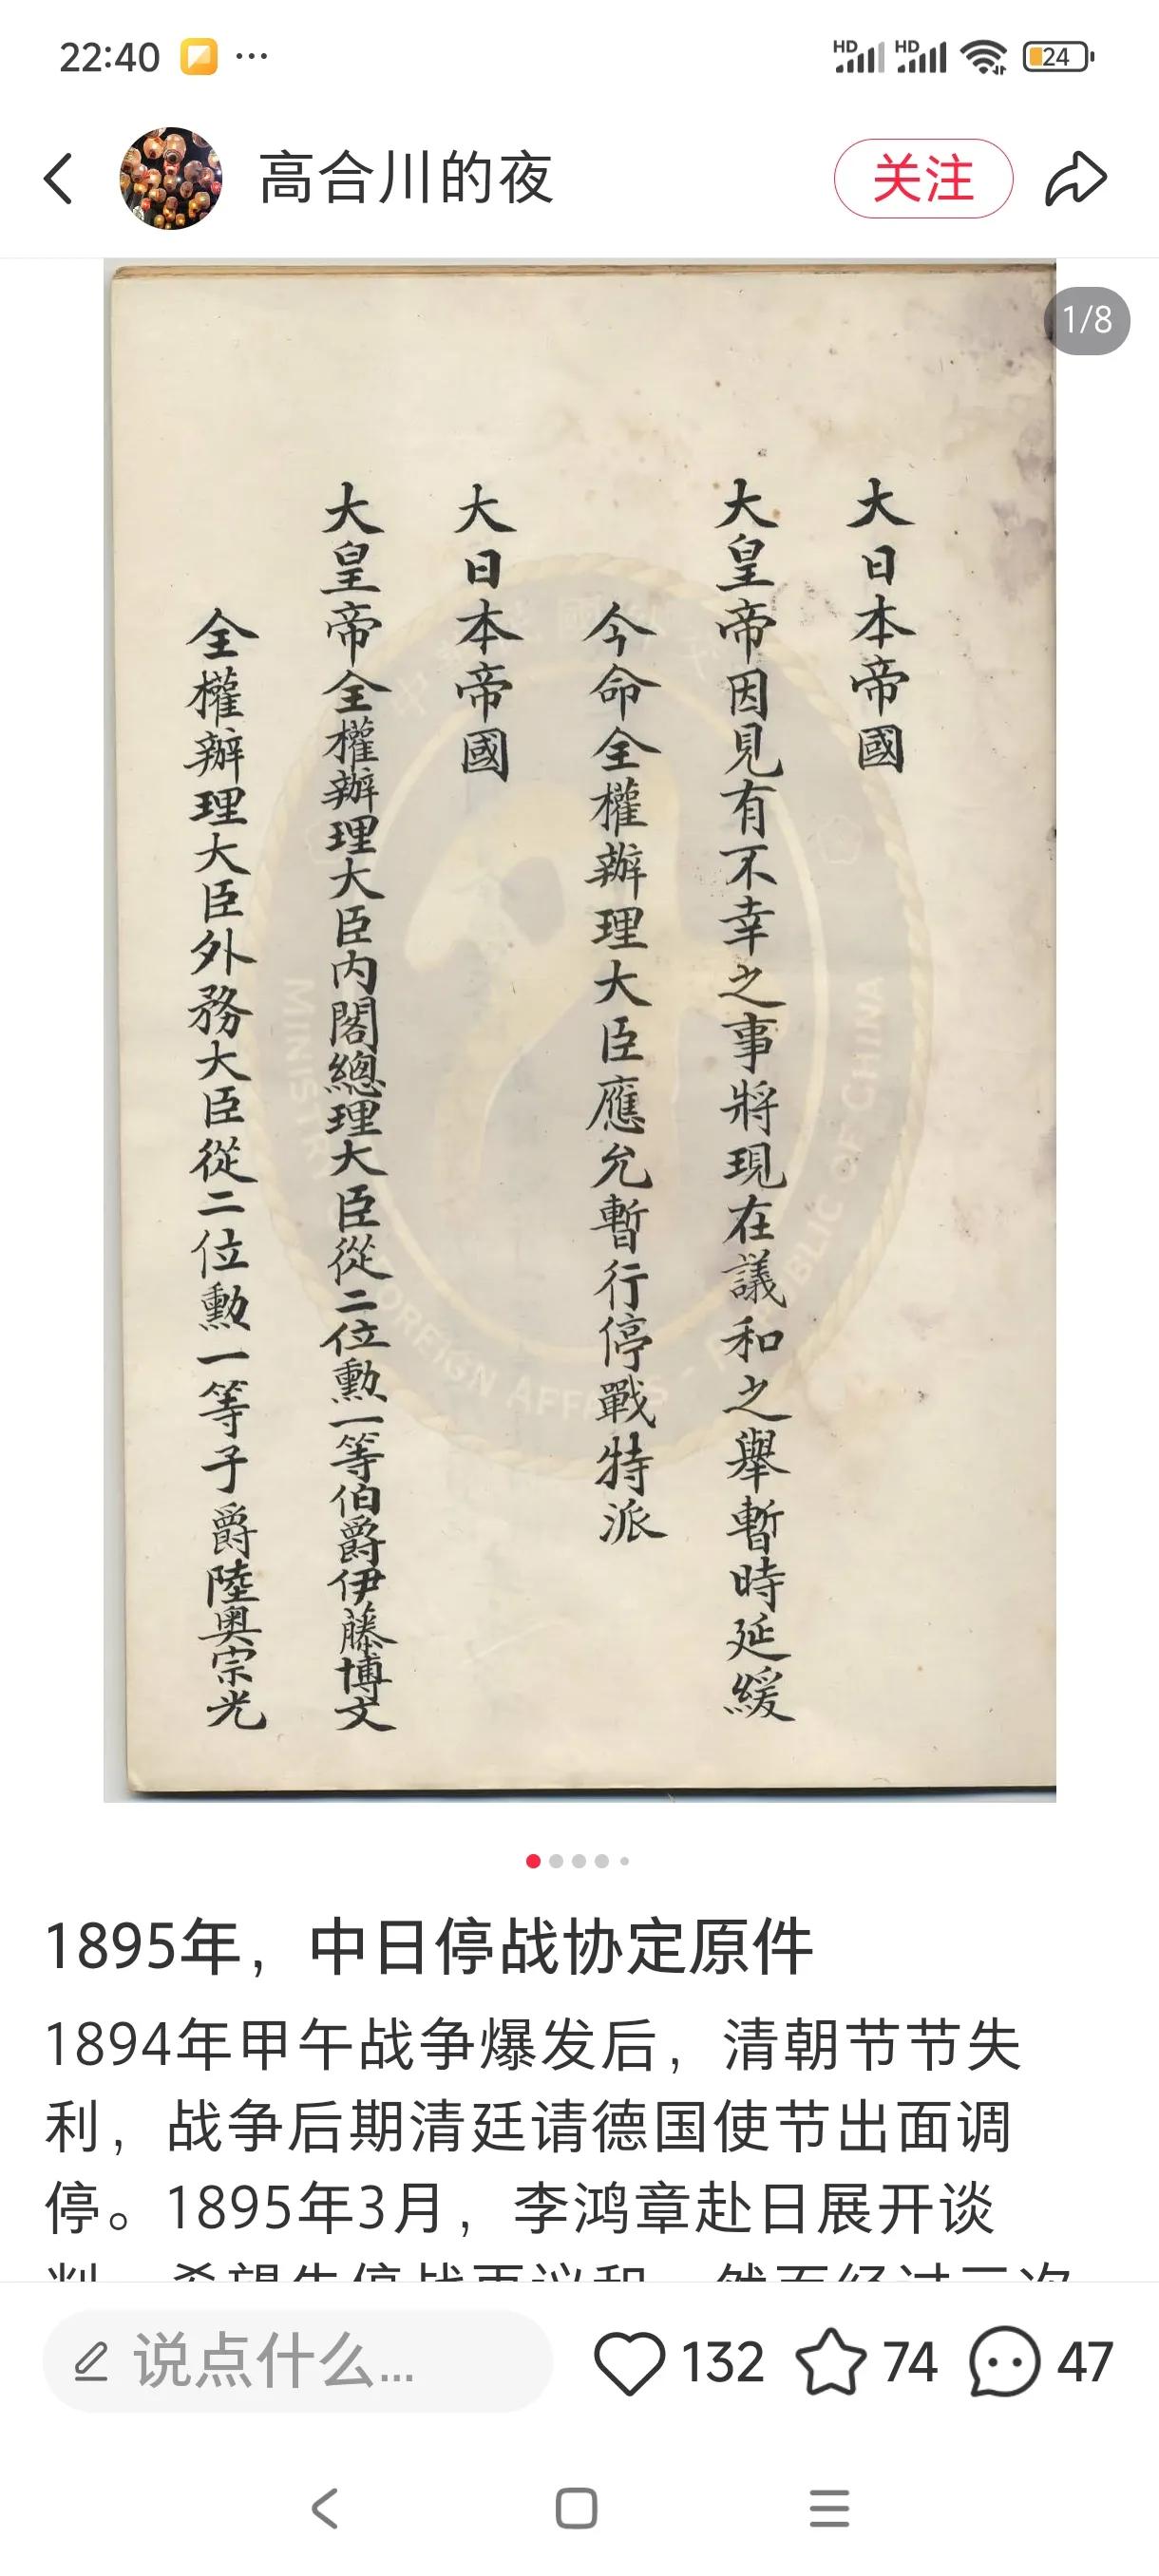 22:40
HD HD 24
高合川的夜
关注
1/8
大日本帝國
大皇帝因見有不幸之事將現在議和之舉暫時延緩
今命全權辦理大臣應允暫行停戰特派
大日本帝國
大皇帝全權辦理大臣内閣總理大臣從二位勳一等伯爵伊藤博文
全權辦理大臣外務大臣從二位勳一等子爵陸奥宗光
MINISTRY OF FOREIGN AFFAIRS - REPUBLIC OF CHINA
1895年，中日停战协定原件
1894年甲午战争爆发后，清朝节节失
利，战争后期清廷请德国使节出面调
停。1895年3月，李鸿章赴日展开谈
说点什么...
132
74
47